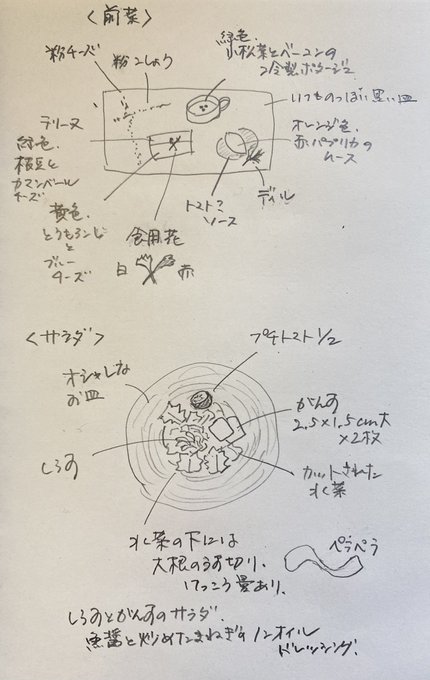 〈前菜〉
粉チーズ
粉こしょう
緑色.
小松菜とベーコンの
冷製ポタージュ
いつものっぽい黒い皿
テリーヌ
緑色.
枝豆と
カマンベール
チーズ
オレンジ色.
赤パプリカの
ムース
黄色.
とうもろこし
と
ブルー
チーズ
食用花
白
赤
トマト?
ソース
ディル
〈サラダ〉
プチトマト1/2
オシャレな
お皿
がんす
2.5×1.5cm大
×2枚
しらす
カットされた
水菜
水菜の下には
大根のうす切り.
けっこう量あり.
ペラペラ
しらすとがんすのサラダ.
魚醤と炒めたまねぎのノンオイル
ドレッシング.